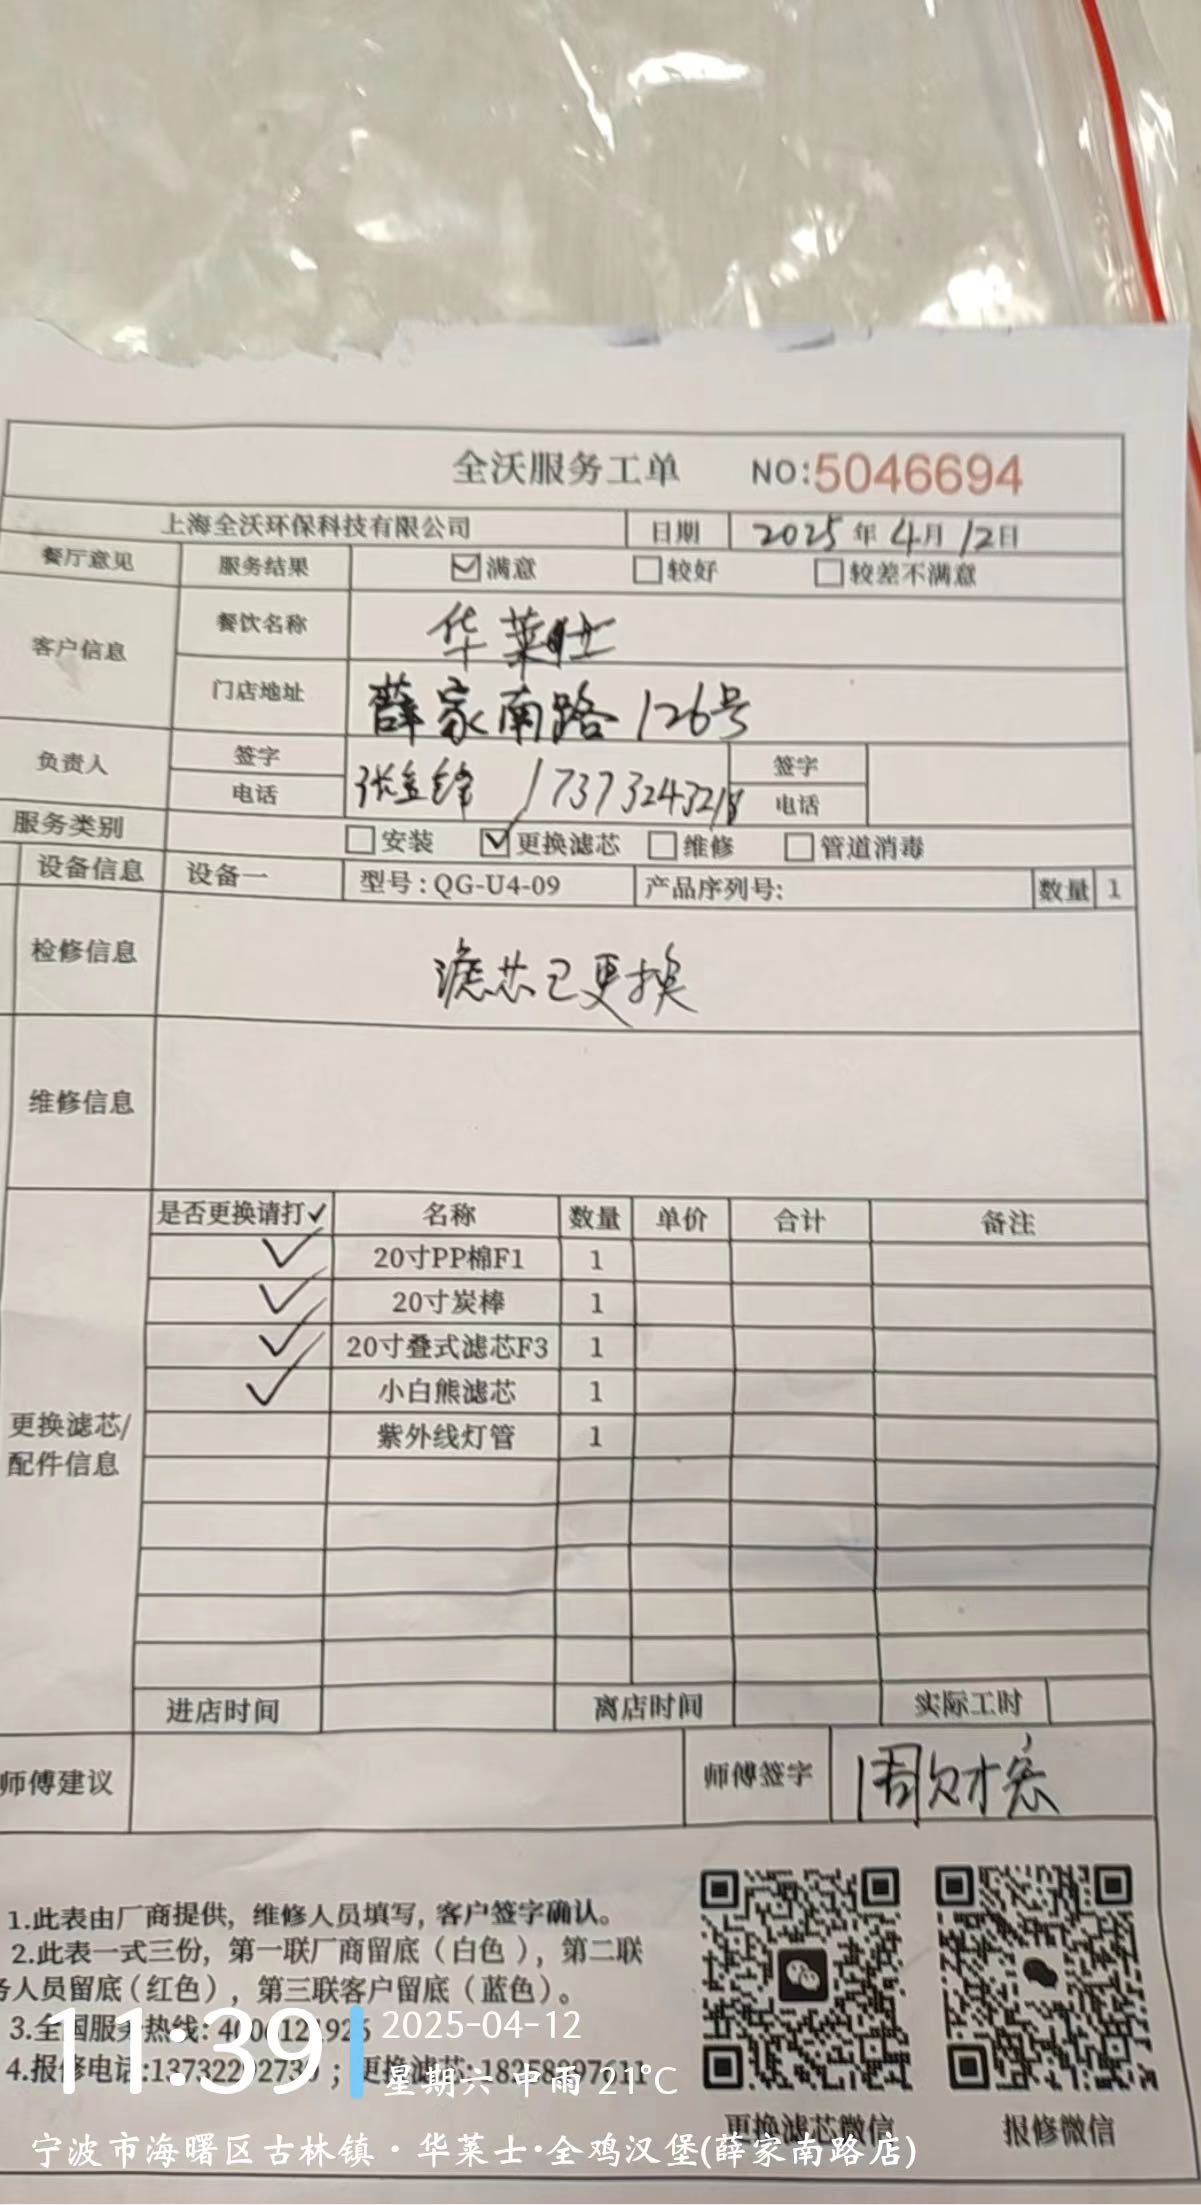 全沃服务工单 NO:5046694
上海全沃环保科技有限公司 日期 2025年4月12日
餐厅意见 服务结果 满意 较好 较差不满意
客户信息 餐饮名称 华莱士
门店地址 薛家南路126号
负责人 签字 签字
电话 电话
服务类别 安装 更换滤芯 维修 管道消毒
设备信息 设备一 型号:QG-U4-09 产品序列号: 数量 1
检修信息 滤芯已更换
维修信息
是否更换请打✓ 名称 数量 单价 合计 备注
✓ 20寸PP棉F1 1
✓ 20寸炭棒 1
✓ 20寸叠式滤芯F3 1
✓ 小白熊滤芯 1
紫外线灯管 1
更换滤芯/
配件信息
进店时间 离店时间 实际工时
师傅建议 师傅签字
1.此表由厂商提供, 维修人员填写, 客户签字确认。
2.此表一式三份, 第一联厂商留底(白色), 第二联
务人员留底(红色), 第三联客户留底(蓝色)。
3.全国服务热线:
4.报修电话: ; 更换滤芯:
更换滤芯微信 报修微信
11:39 2025-04-12
星期六 中雨 21°C
宁波市海曙区古林镇·华莱士·全鸡汉堡(薛家南路店)